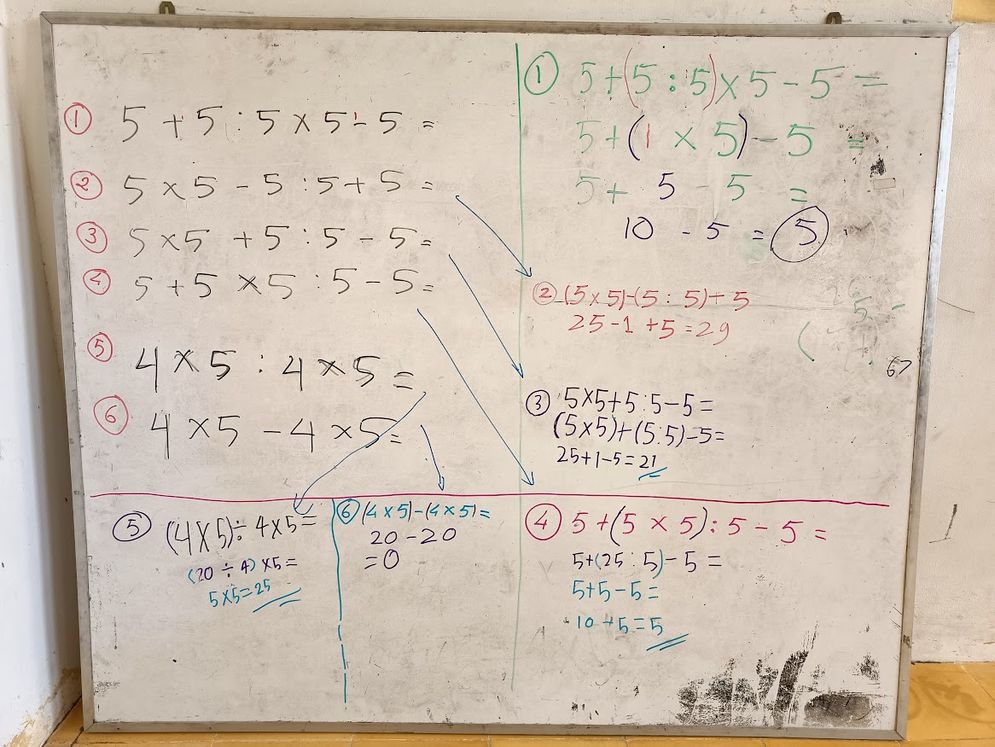 ① 5 + 5 : 5 × 5 - 5 =
② 5 × 5 - 5 : 5 + 5 =
③ 5 × 5 + 5 : 5 - 5 =
④ 5 + 5 × 5 : 5 - 5 =
⑤ 4 × 5 : 4 × 5 =
⑥ 4 × 5 - 4 × 5 =
① 5 + (5 : 5) × 5 - 5 =
5 + (1 × 5) - 5 =
5 + 5 - 5 =
10 - 5 = 5
② (5 × 5) - (5 : 5) + 5
25 - 1 + 5 = 29
67
③ 5 × 5 + 5 : 5 - 5 =
(5 × 5) + (5 : 5) - 5 =
25 + 1 - 5 = 21
④ 5 + (5 × 5) : 5 - 5 =
5 + (25 : 5) - 5 =
5 + 5 - 5 =
10 + 5 = 5
⑤ (4 × 5) ÷ 4 × 5 =
(20 ÷ 4) × 5 =
5 × 5 = 25
⑥ (4 × 5) - (4 × 5) =
20 - 20
= 0